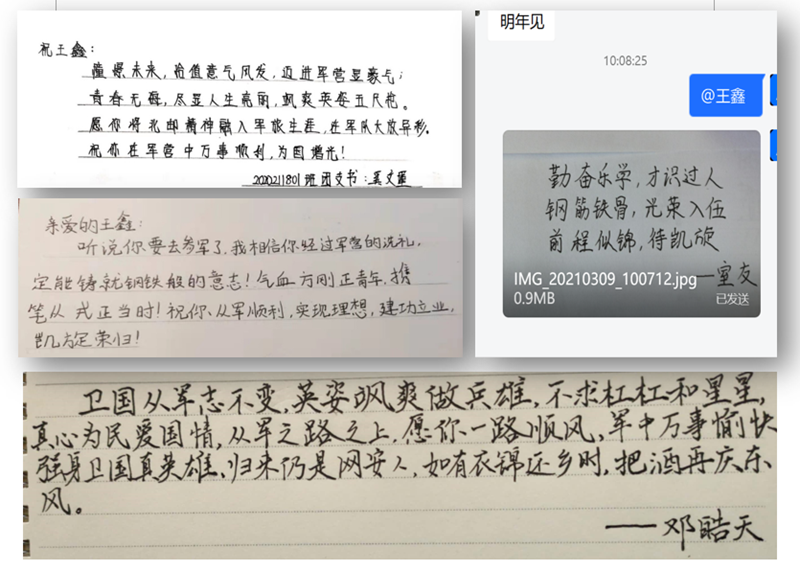 祝王鑫：
憧憬未来，恰值意气风发，迈进军营显豪气；
青春无悔，尽显人生亮丽，飒爽英姿五尺枪。
愿你将北邮精神融入军旅生涯，在军队大放异彩。
祝你在军营中万事顺利，为国增光！
2020211801班团支书：吴文
亲爱的王鑫：
听说你要去参军了，我相信你经过军营的洗礼，
定能铸就钢铁般的意志！气血方刚正青年，携
笔从戎正当时！祝你从军顺利，实现理想，建功立业，
凯旋荣归！
明年见
10:08:25
@王鑫
勤奋乐学，才识过人
钢筋铁骨，光荣入伍
前程似锦，待凯旋
——室友
IMG_20210309_100712.jpg
0.9MB
已发送
卫国从军志不变，英姿飒爽做兵雄，不求杠杠和星星，
真心为民爱国情，从军之路之上，愿你一路顺风，军中万事愉快
强身卫国真英雄，归来仍是网安人，如有衣锦还乡时，把酒再庆东
风。
——邓皓天